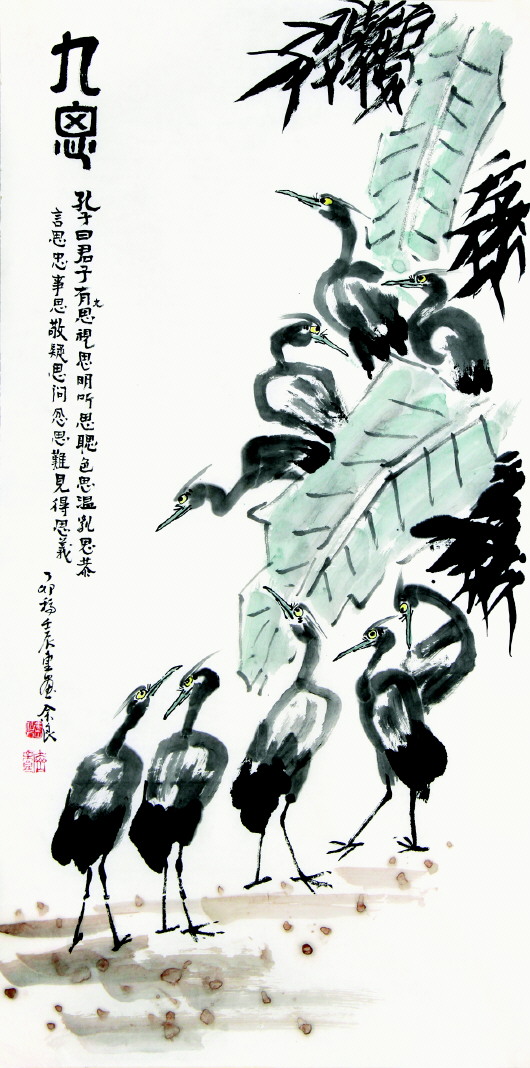 九思
孔子曰君子有九思視思明听思聰色思温皃思恭
言思忠事思敬疑思问忿思難見得思義
丁卯稿壬辰重畫余良